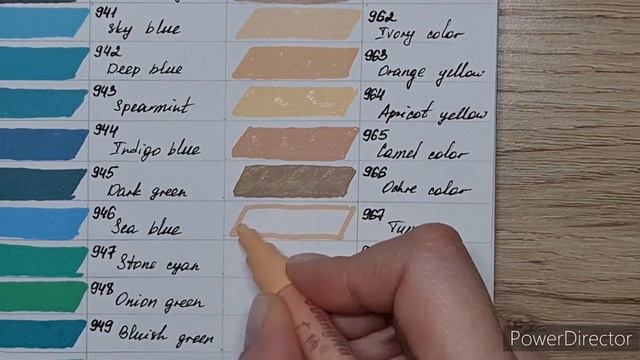 941
Sky blue
942
Deep blue
943
Spearmint
944
Indigo blue
945
Dark green
946
Sea blue
947
Stone cyan
948
Onion green
949
Bluish green
962
Ivory color
963
Orange yellow
964
Apricot yellow
965
Camel color
966
Ochre color
967
PowerDirector